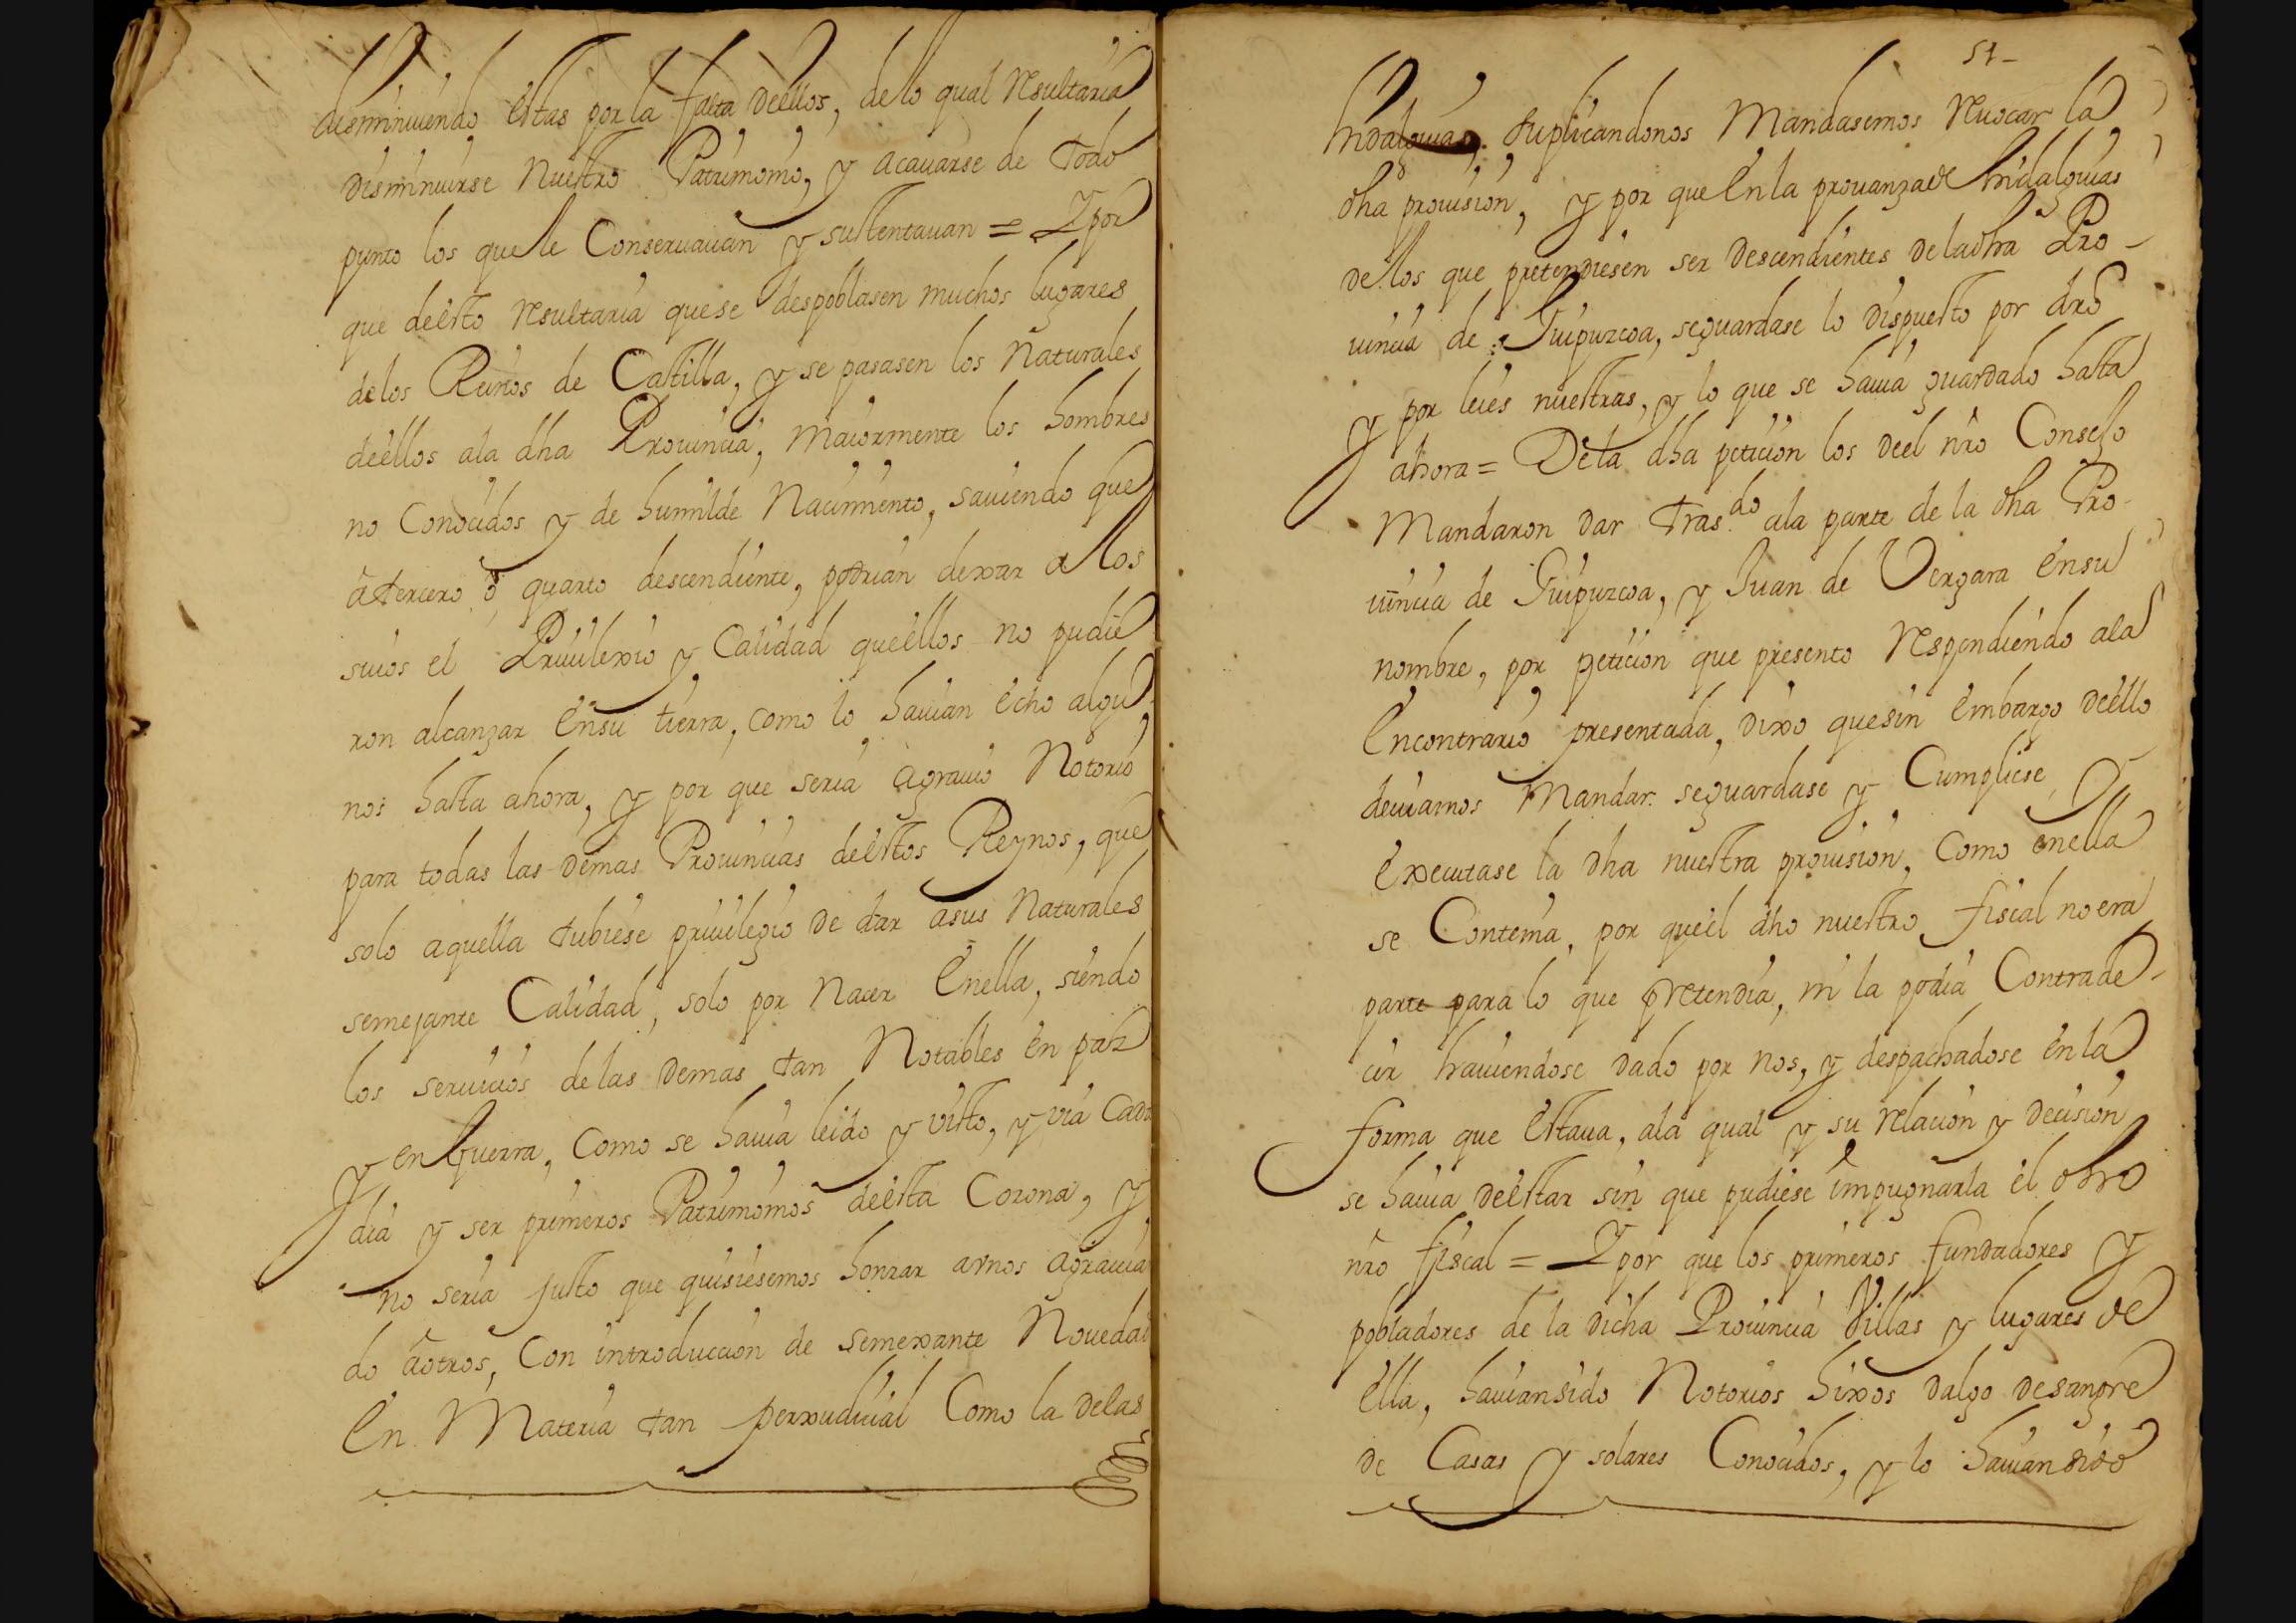 disminuiendo estas por la falta deellos, delo qual Resultaria
disminuirse nuestro Patrimonio, y acauarse de todo
punto los que le Conseruauan y sustentauan = Y por
que deesto Resultaria quese despoblasen muchos lugares
delos Reinos de Castilla, y se pasasen los Naturales
deellos ala dha Prouincia, maiormente los hombres
no Conocidos y de humilde Nacimiento, sauiendo que
átercero ó quarto descendiente, podrian dexar a los
suios el Priuilexio y Calidad queellos no pudie
ron alcanzar ensu tierra, como lo hauian echo algu
nos hasta ahora, y por que seria agrauio Notorio
para todas las demas Prouincias deestos Reynos, que
solo aquella tubiese priuilegio de dar asus Naturales
semejante Calidad, solo por Nacer enella, siendo
los seruicios delas demas tan Notables en paz
y en Guerra, Como se hauia leido y visto, y via Cada
dia y ser primeros Patrimonios deesta Corona, y
no seria justo que quisiesemos honrar avnos agrauian
do áotros, Con introduccion de semexante Nouedad
en Materia tan perxudicial Como la delas
51-
hidalguias, suplicandonos Mandasemos Reuocar la
dha prouision, y por que enla prouanzade hidalguias
de los que pretendiesen ser descendientes deladha Pro-
uincia de Guipuzcoa, seguardase lo dispuesto por dro
y por leies nuestras, y lo que se hauia guardado hasta
ahora = Deta dha peticion los deel nro Consejo
Mandaron dar tras.do ala parte de la dha Pro-
uincia de Guipuzcoa, y Juan de Vergara ensu
nombre, por peticion que presento Respondiendo ala
encontrario presentada, dixo quesin embargo deello
deuiamos Mandar seguardase y Cumpliese, y
executase la dha nuestra prouision, Como enella
se Contenia, por queel dho nuestro fiscal no era
parte para lo que pretendia, ni la podia Contrade-
cir hauiendose dado por nos, y despachadose enla
forma que estaua, ala qual y su relacion y decision
se hauia deestar sin que pudiese impugnarla el dho
nro fiscal = Y por que los primeros fundadores y
pobladores de la dicha Prouincia Villas y lugares de
ella, hauiansido Notorios hixos dalgo desangre
de Casas y solares Conocidos, y lo hauiansido